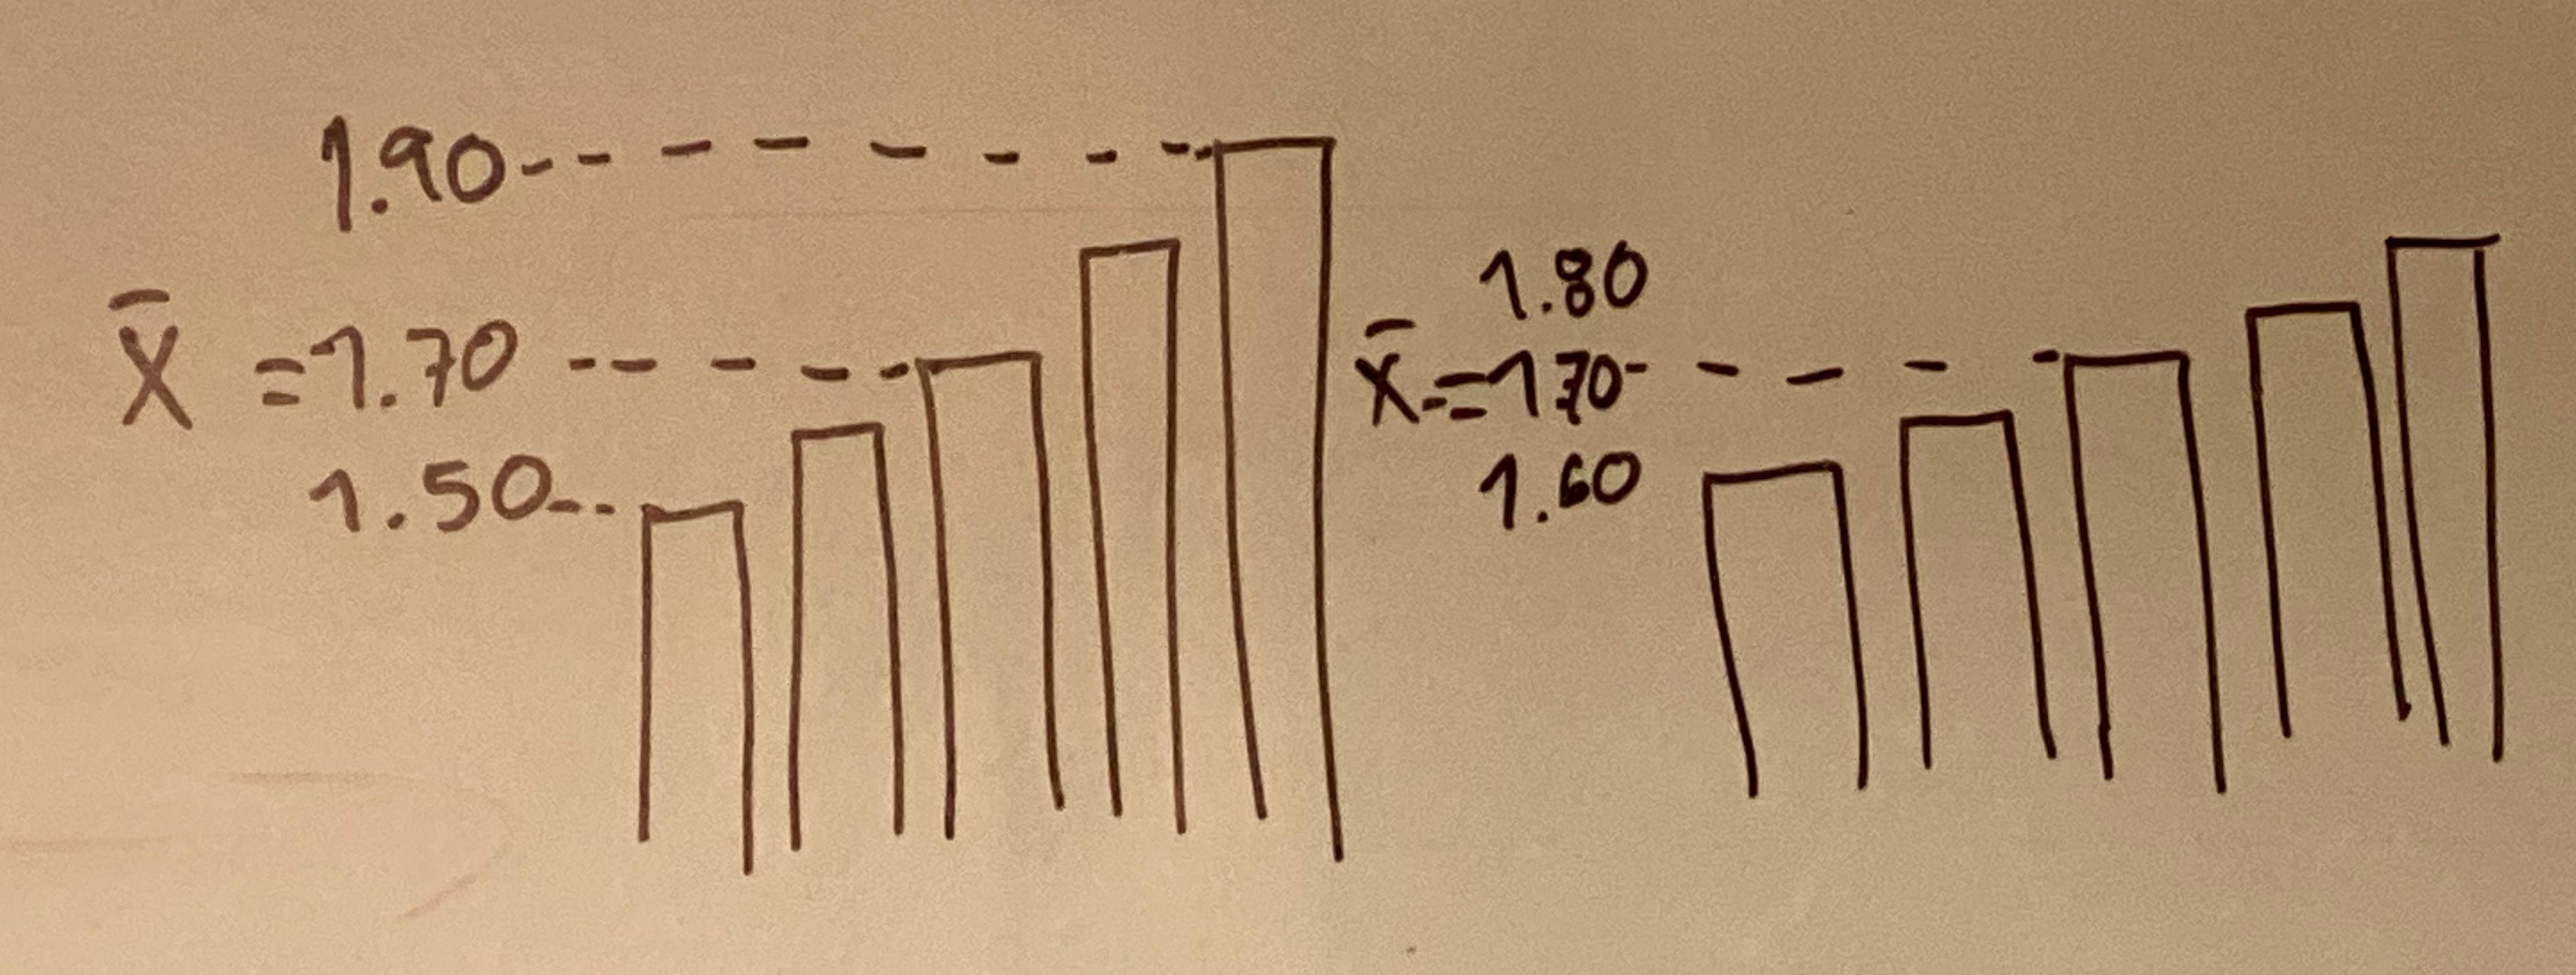 1.90
X̄ = 1.70
1.50
1.80
X̄ = 170
1.60